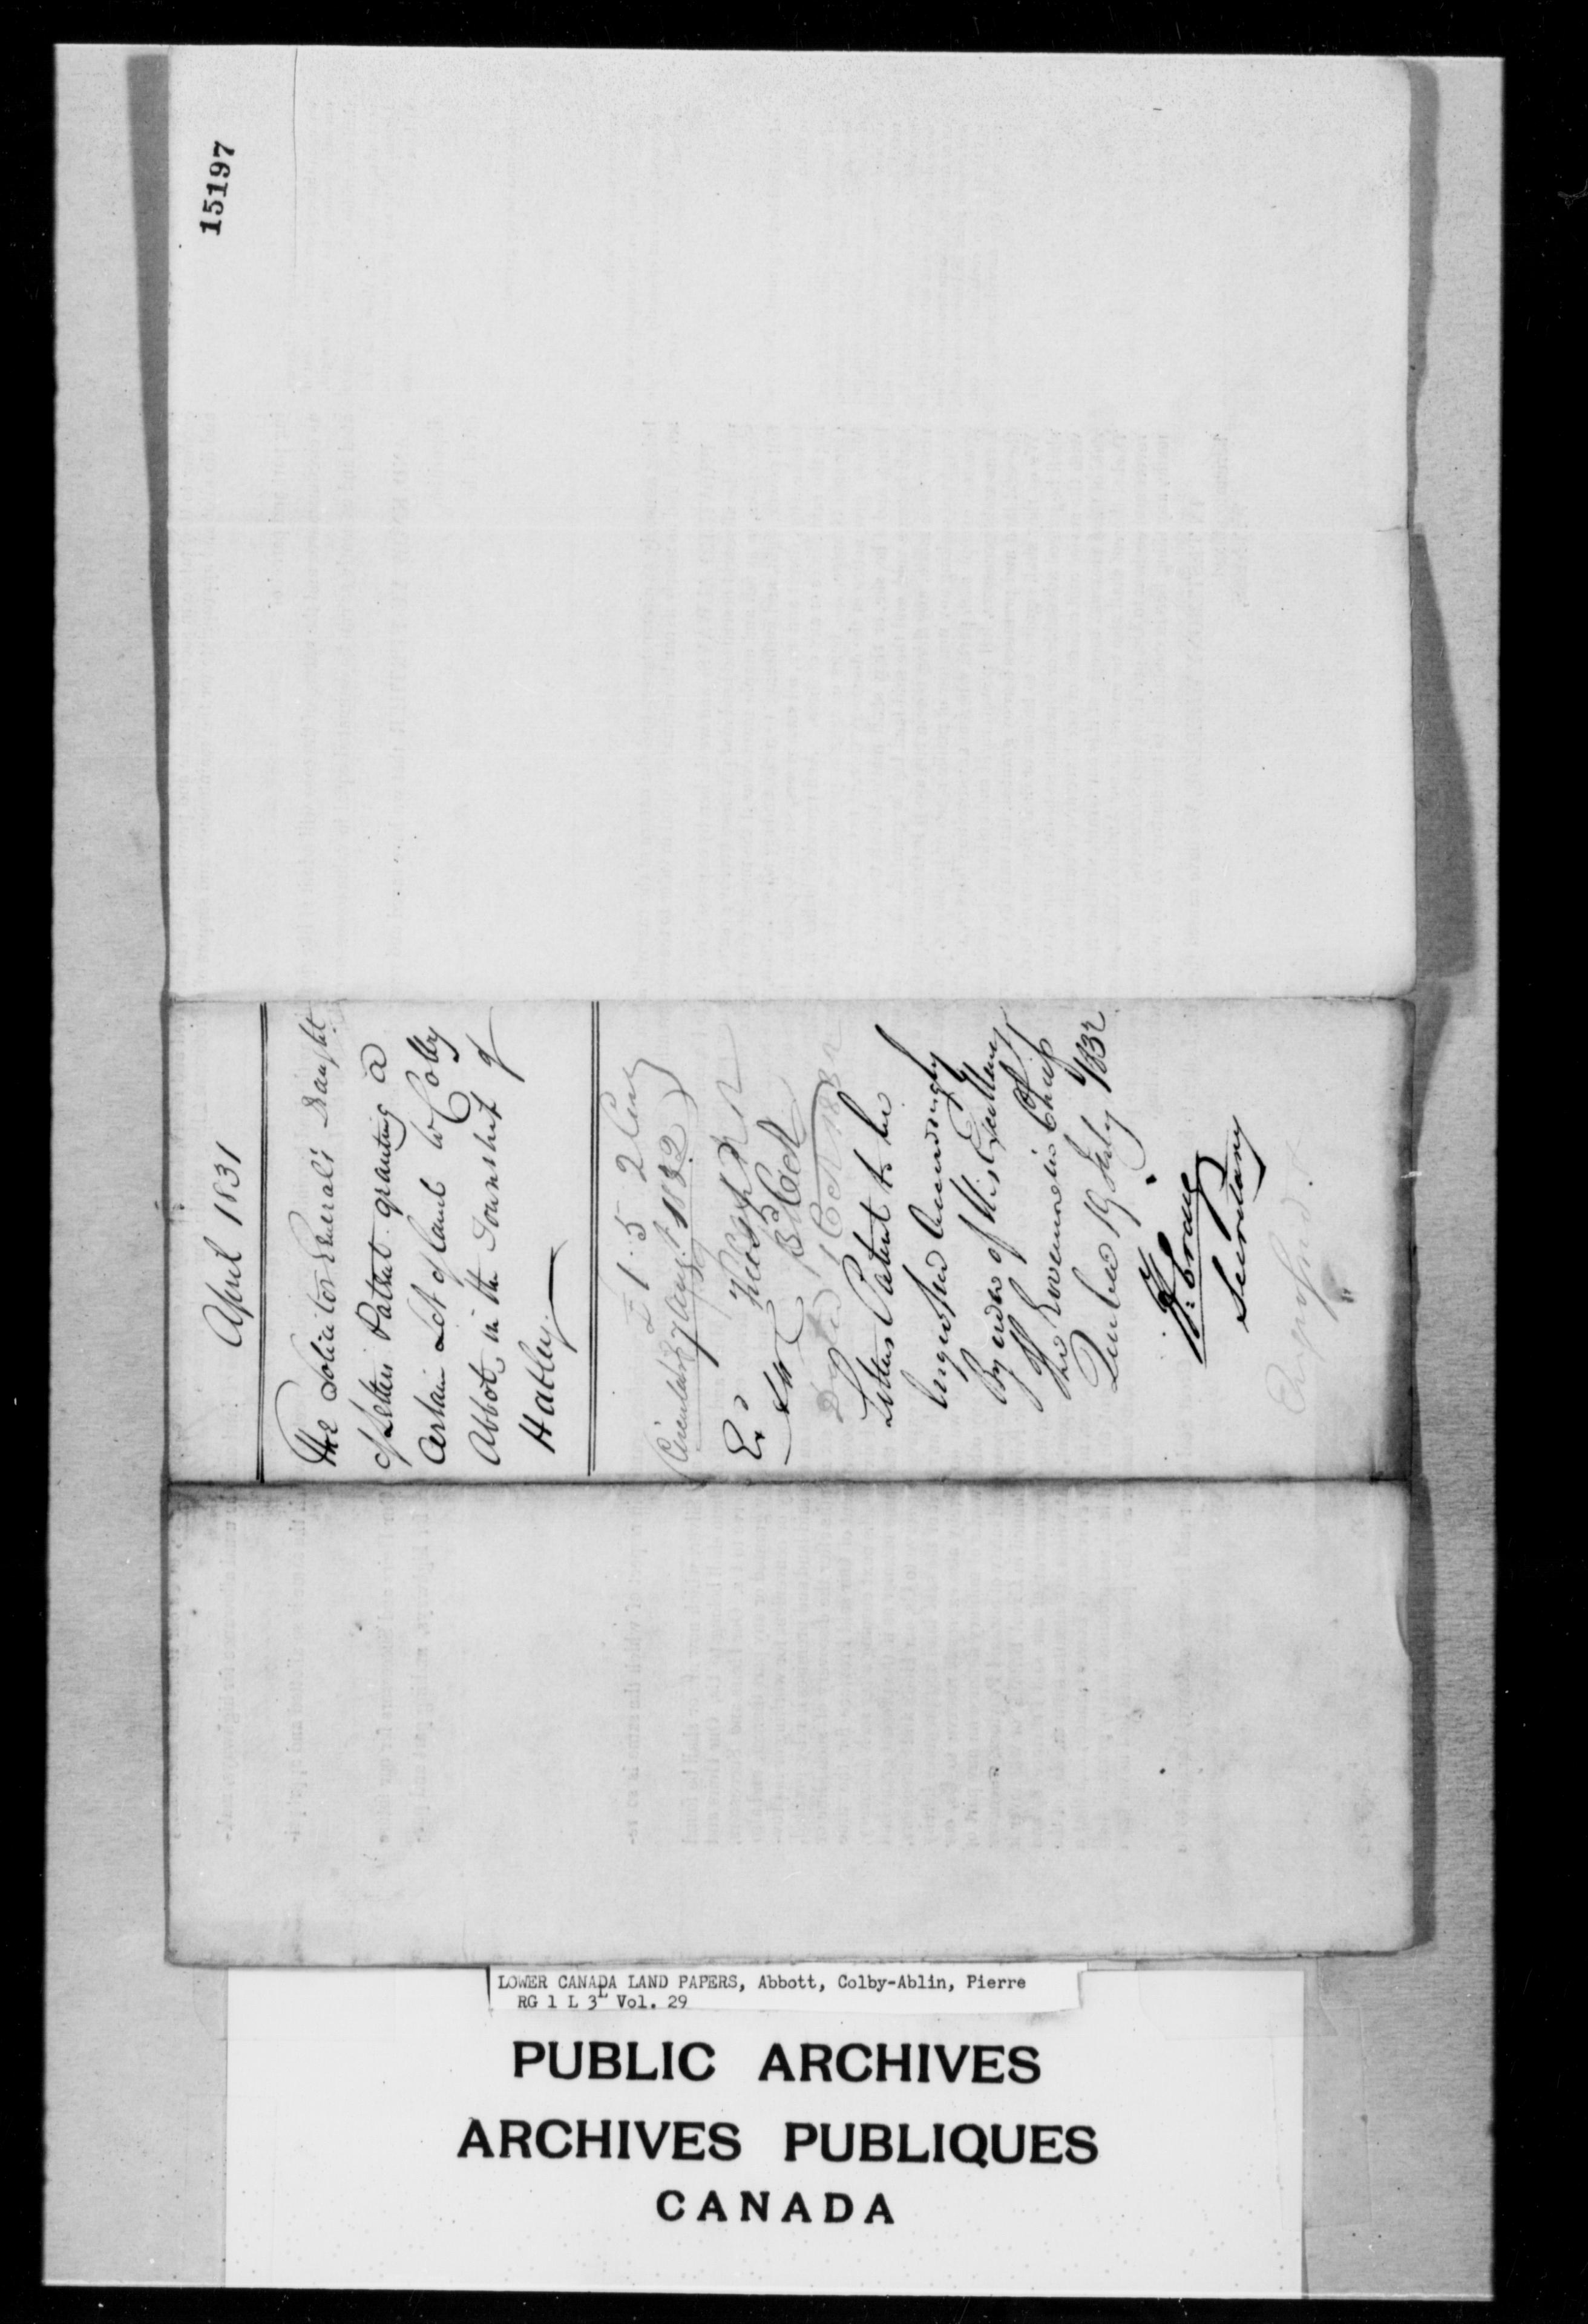 15197
April 1831
The Solicitor General's Draught
of Letters Patent granting a
certain Lot of land to Colby
Abbot, in the Township of
Hatley.
1.5.2
1832
Letters Patent to be
engrossed accordingly
By order of His Excellency
The Governor in Chief
Quebec 19 July 1832
H: Craig
Secretary
Engrossed
LOWER CANADA LAND PAPERS, Abbott, Colby-Ablin, Pierre
RG 1 L 3L Vol. 29
PUBLIC ARCHIVES
ARCHIVES PUBLIQUES
CANADA